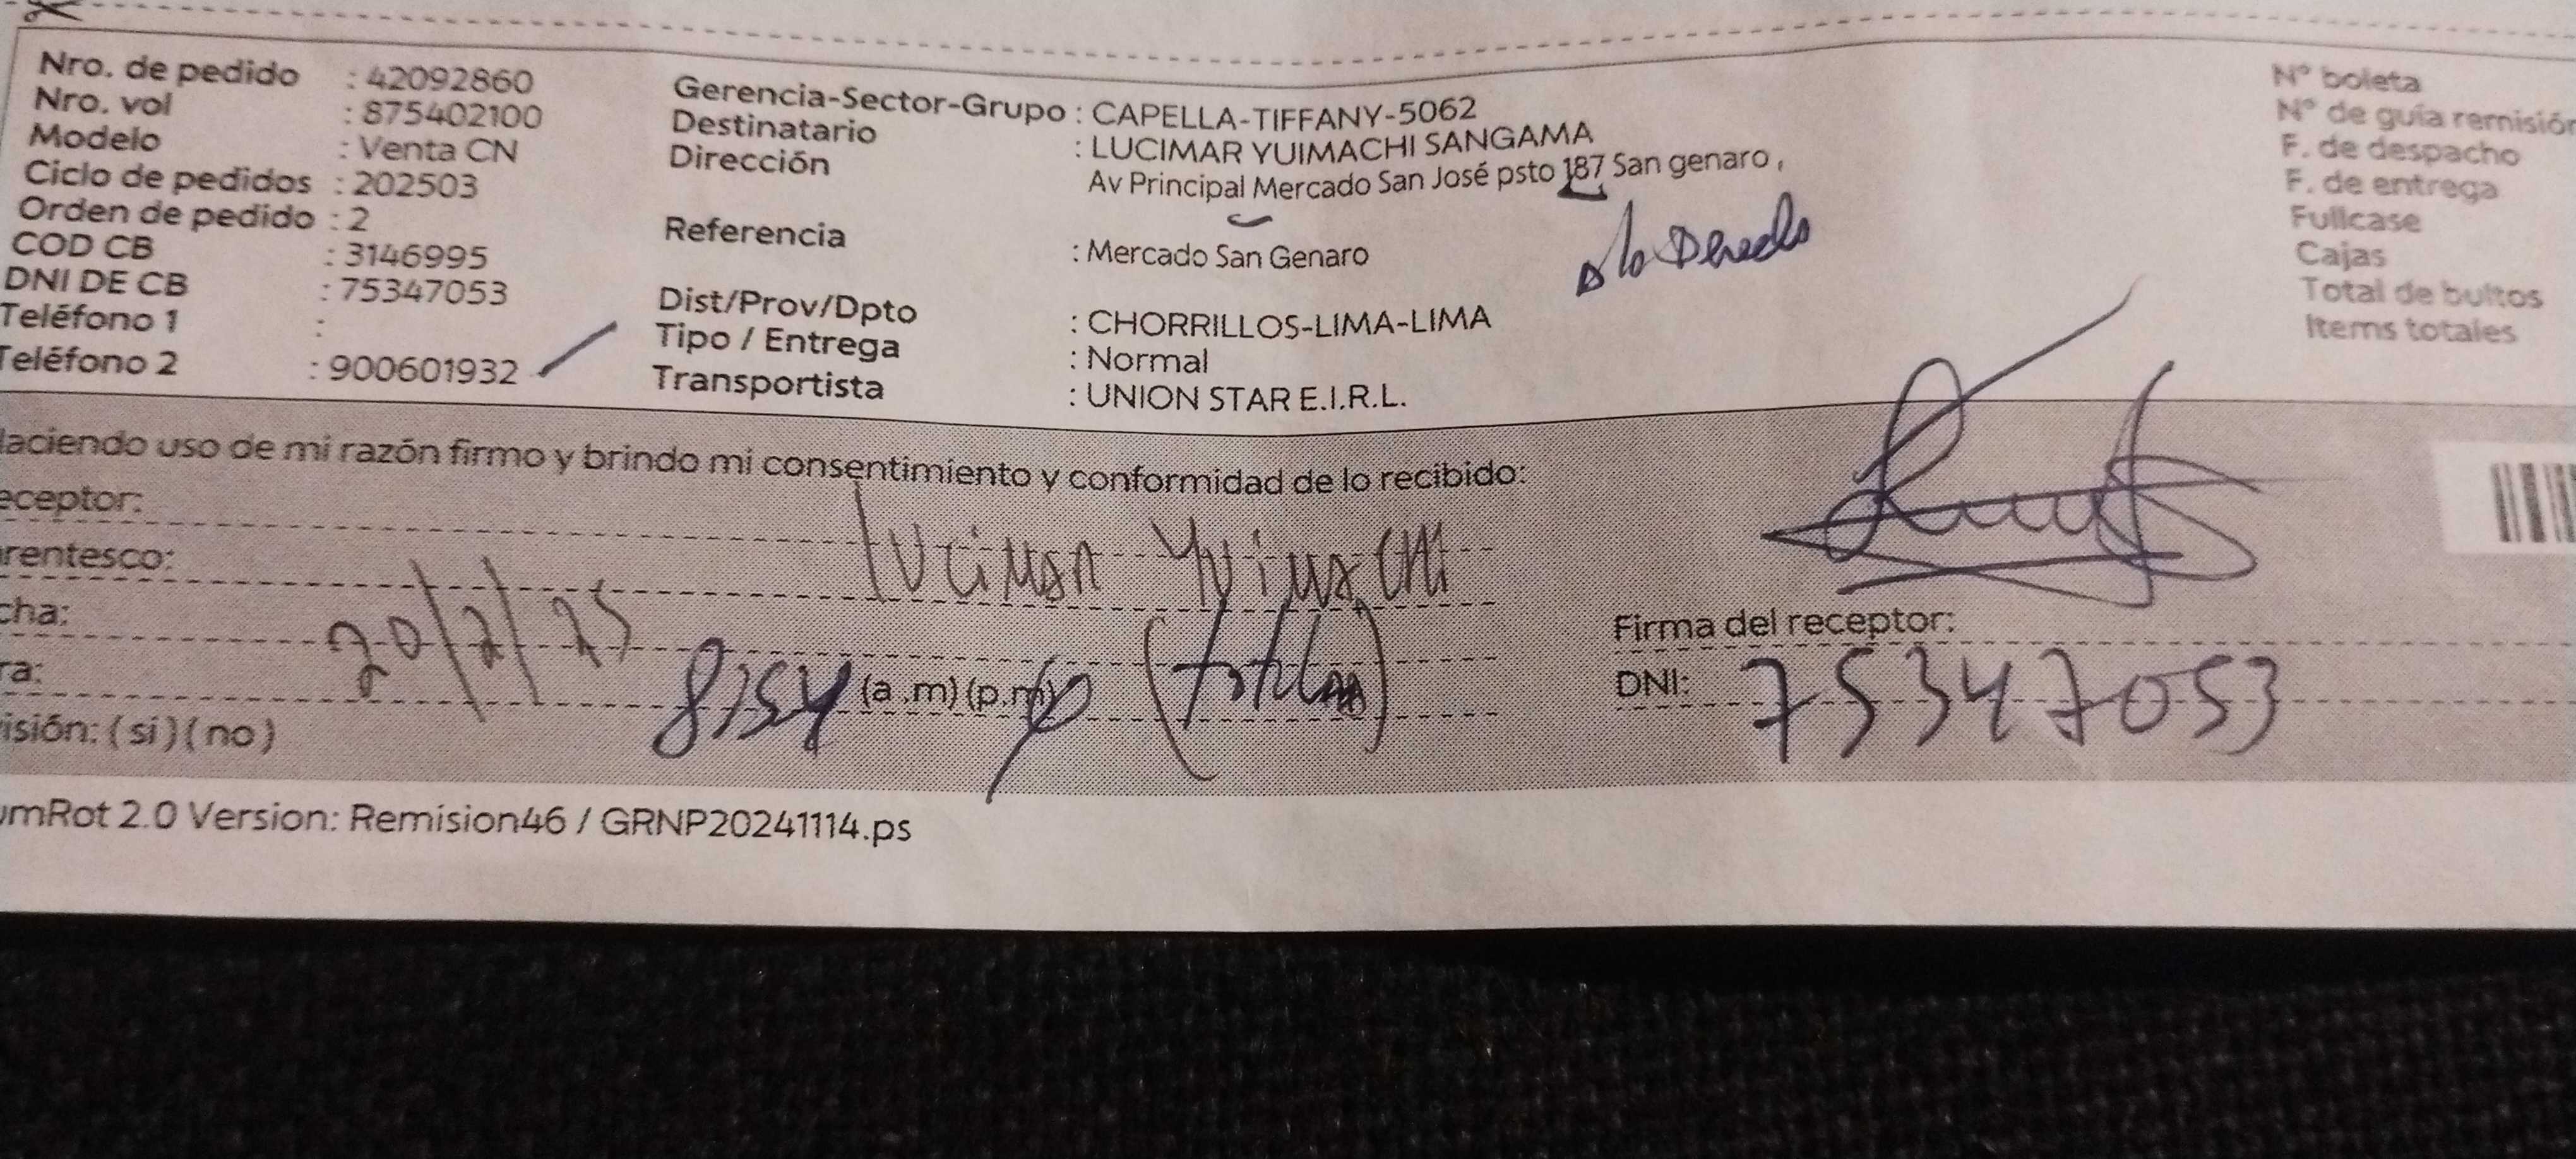 Nro. de pedido : 42092860
Nro. vol : 875402100
Modelo : Venta CN
Ciclo de pedidos : 202503
Orden de pedido : 2
COD CB : 3146995
DNI DE CB : 75347053
Teléfono 1 :
Teléfono 2 : 900601932
Gerencia-Sector-Grupo : CAPELLA-TIFFANY-5062
Destinatario : LUCIMAR YUIMACHI SANGAMA
Dirección
Av Principal Mercado San José psto 187 San genaro ,
Referencia : Mercado San Genaro
Dist/Prov/Dpto : CHORRILLOS-LIMA-LIMA
Tipo / Entrega : Normal
Transportista : UNION STAR E.I.R.L.
N° boleta
N° de guía remisión
F. de despacho
F. de entrega
Fullcase
Cajas
Total de bultos
Items totales
Haciendo uso de mi razón firmo y brindo mi consentimiento y conformidad de lo recibido:
eceptor: lucimar Yuimachi
rentesco:
cha: 20/2/25
ra: 8:54 (a .m) (p.m)
isión: ( si ) ( no )
Firma del receptor:
DNI: 75347053
umRot 2.0 Version: Remision46 / GRNP20241114.ps